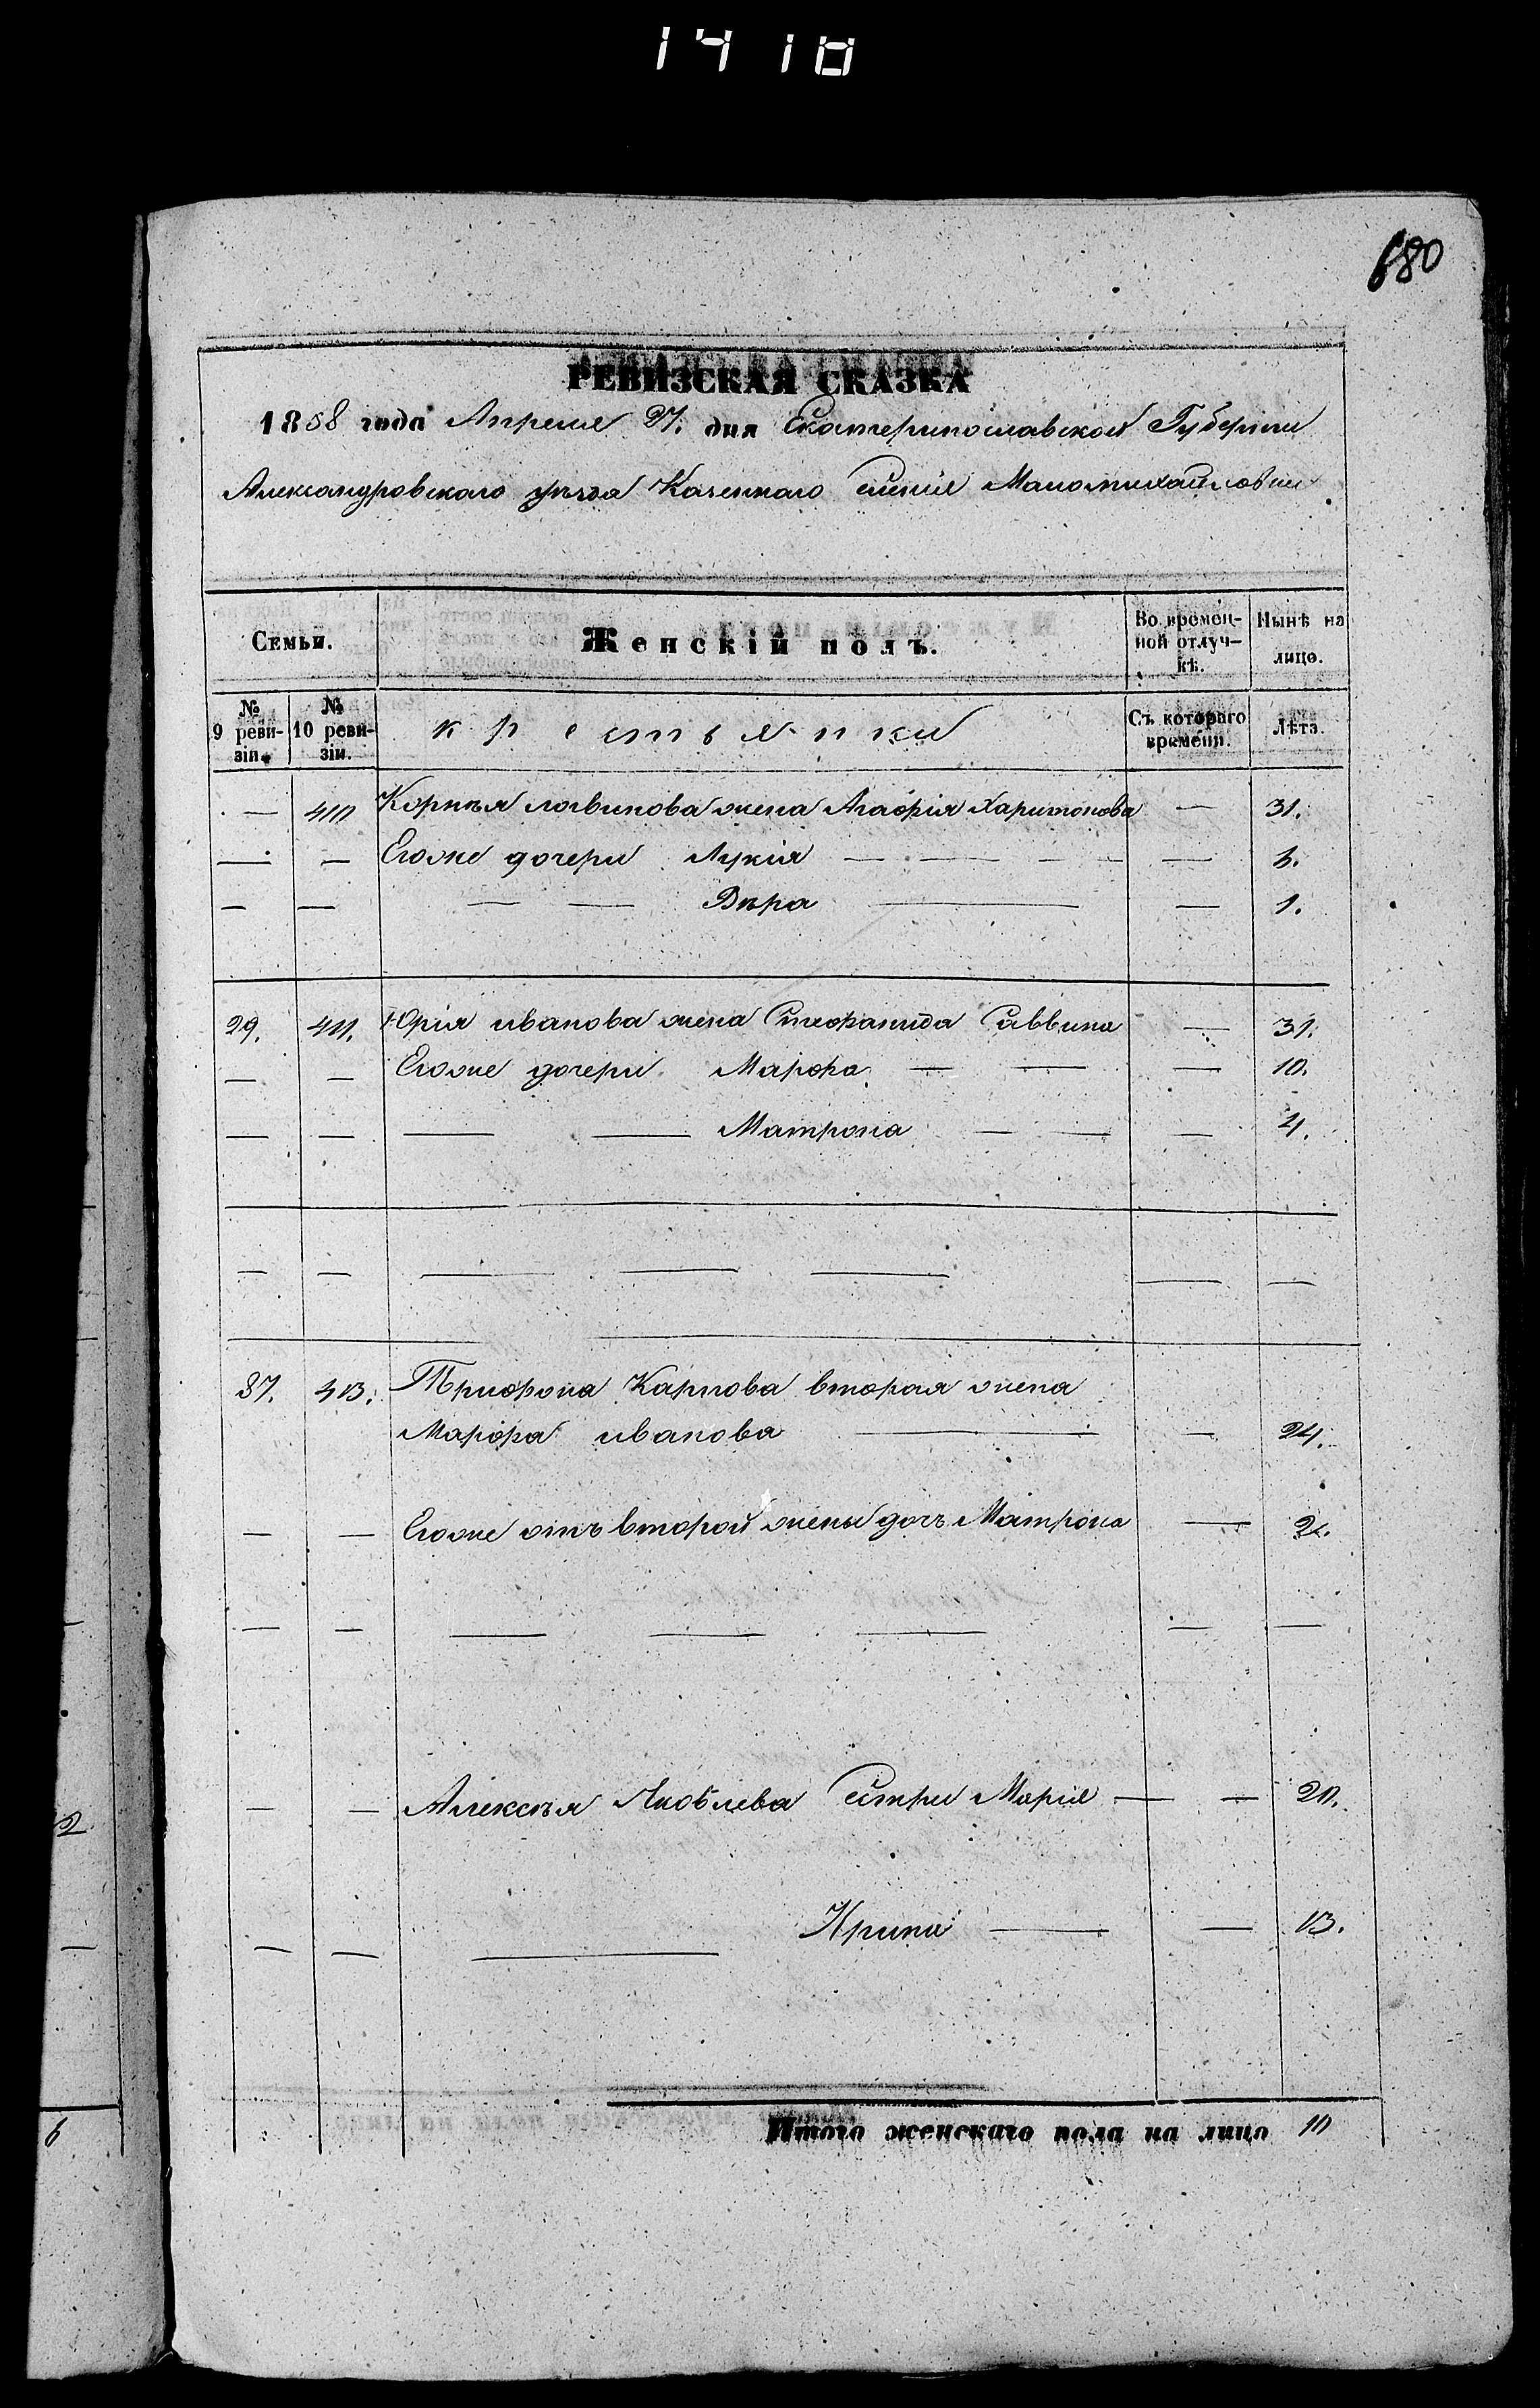 1410
680
РЕВИЗСКАЯ СКАЗКА
1858 года Апреля 27. дня Екатеринославской Губернiи
Александровскаго уѣзда Казеннаго селенiя Маломихайловки
Семьи. Женскiй полъ. Во времен- Нынѣ на
ной отлуч- лицо.
кѣ.
№ № крестьянки Съ котораго Лѣтъ.
9 реви- 10 реви- времени.
зiи. зiи.
— 410 Корнѣя логвинова жена Агафiя Харитонова — 31.
— — Егоже дочери Лукiя — — — —
— — — — Вѣра — — 1.
29. 411. Юрiя иванова жена Стефанида Саввина — 31.
— — Егоже дочери Марфа — — — 10.
— — — — Матрона — — — 4.
— — — — — — —
37. 413. Трифона Карпова вторая жена
Марфа иванова — — 24.
— — Егоже отъ второй жены дочь Матрона — 2.
— — — — — — —
— — Алексѣя Яковлева сестри Марiя — — 20.
— — — Ирина — — 13.
Итого женскаго пола на лицо 10
2
6